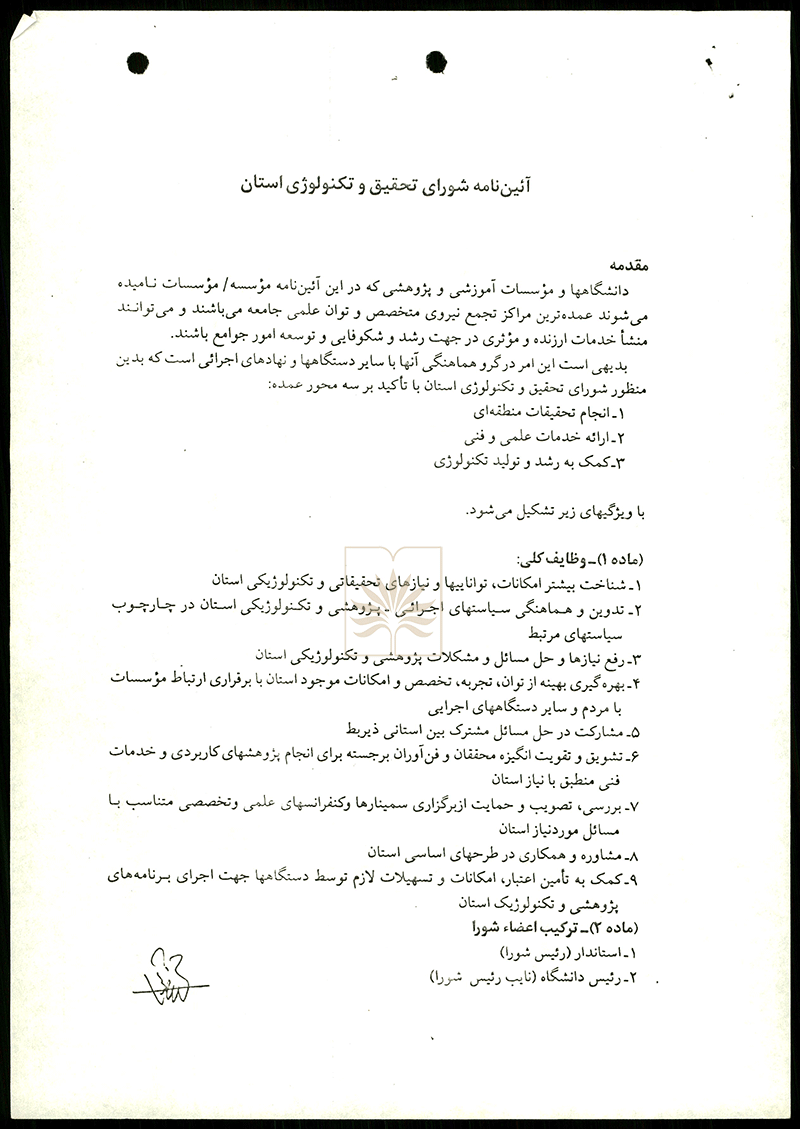 آئین‌نامه شورای تحقیق و تکنولوژی استان
مقدمه
دانشگاهها و مؤسسات آموزشی و پژوهشی که در این آئین‌نامه مؤسسه/ مؤسسات نـامیده
می‌شوند عمده‌ترین مراکز تجمع نیروی متخصص و توان علمی جامعه می‌باشند و می‌توانـند
منشأ خدمات ارزنده و مؤثری در جهت رشد و شکوفایی و توسعه امور جوامع باشند.
بدیهی است این امر درگرو هماهنگی آنها با سایر دستگاهها و نهادهای اجرائی است که بدین
منظور شورای تحقیق و تکنولوژی استان با تأکید بر سه محور عمده:
۱ـ انجام تحقیقات منطقه‌ای
۲ـ ارائه خدمات علمی و فنی
۳ـ کمک به رشد و تولید تکنولوژی
با ویژگیهای زیر تشکیل می‌شود.
(ماده ۱)ـ وظایف کلی:
۱ـ شناخت بیشتر امکانات، تواناییها و نیازهای تحقیقاتی و تکنولوژیکی استان
۲ـ تدوین و هـماهنگی سـیاستهای اجـرائـی ـ پـژوهشی و تکـنولوژیکی اسـتان در چـارچـوب
سیاستهای مرتبط
۳ـ رفع نیازها و حل مسائل و مشکلات پژوهشی و تکنولوژیکی استان
۴ـ بهره‌گیری بهینه از توان، تجربه، تخصص و امکانات موجود استان با برقراری ارتباط مؤسسات
با مردم و سایر دستگاههای اجرایی
۵ـ مشارکت در حل مسائل مشترک بین استانی ذیربط
۶ـ تشویق و تقویت انگیزه محققان و فن‌آوران برجسته برای انجام پژوهشهای کاربردی و خدمات
فنی منطبق با نیاز استان
۷ـ بررسی، تصویب و حمایت ازبرگزاری سمینارها وکنفرانسهای علمی وتخصصی متناسب بـا
مسائل موردنیاز استان
۸ـ مشاوره و همکاری در طرحهای اساسی استان
۹ـ کمک به تأمین اعتبار، امکانات و تسهیلات لازم توسط دستگاهها جهت اجرای بـرنامه‌های
پژوهشی و تکنولوژیک استان
(ماده ۲)ـ ترکیب اعضاء شورا
۱ـ استاندار (رئیس شورا)
۲ـ رئیس دانشگاه (نایب رئیس شورا)